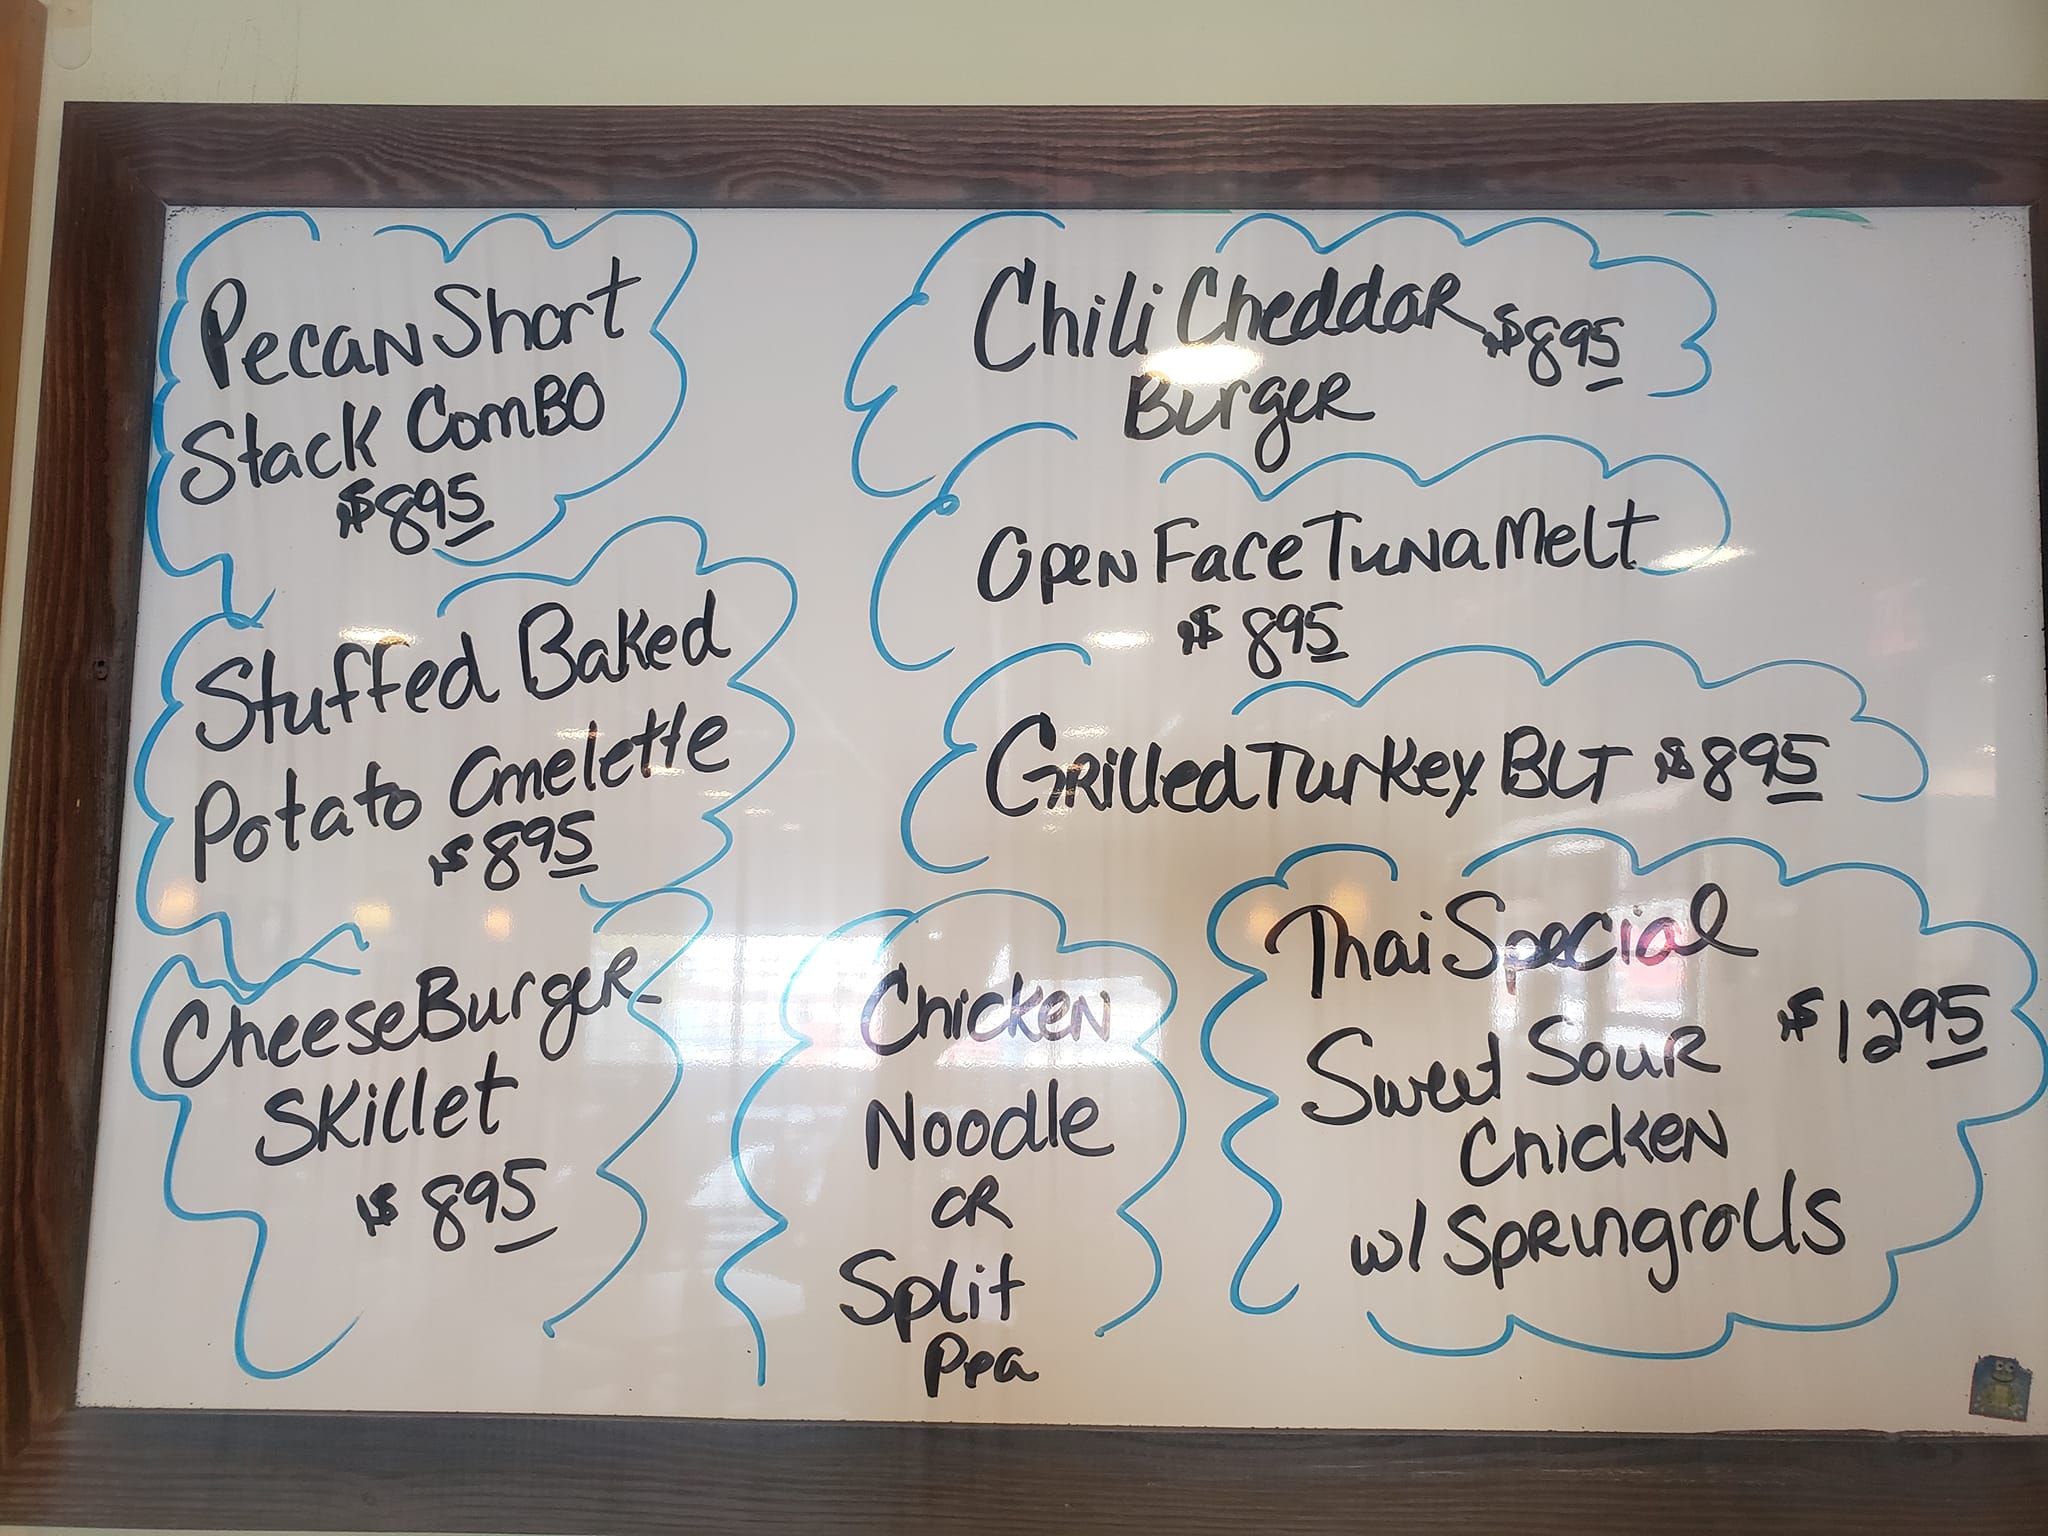 Pecan Short
Stack Combo
$8 95
Stuffed Baked
Potato Omelette
$8 95
CheeseBurger
Skillet
$8 95
Chili Cheddar $8 95
Burger
Open Face Tuna Melt
$8 95
Grilled Turkey BLT $8 95
Chicken
Noodle
or
Split
Pea
Thai Special
$12 95
Sweet Sour
Chicken
w/ Springrolls